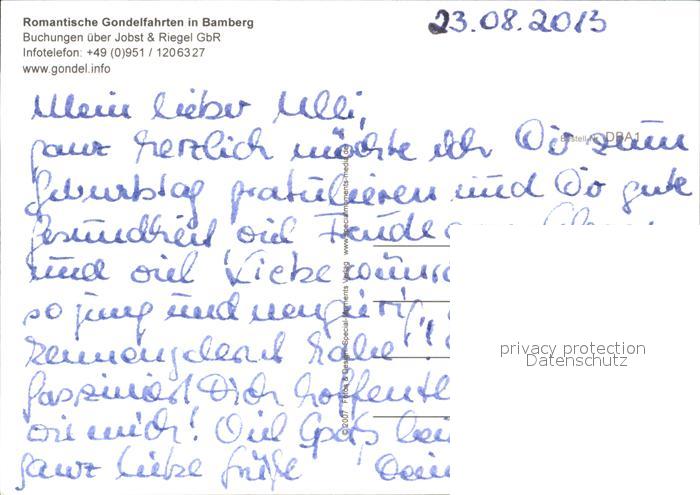 Romantische Gondelfahrten in Bamberg
Buchungen über Jobst & Riegel GbR
Infotelefon: +49 (0)951 / 1206327
www.gondel.info
23.08.2013
Mein lieber Ulli,
ganz herzlich möchte ich Dir zum
Bestell-Nr. DBA1
Geburtstag gratulieren und Dir gute
Gesundheit viel Freude
und viel Liebe
so jung und neugierig
kennengelernt habe!
fasziniert Dich
wie mich! Viel Spaß
ganz liebe Grüße
© 2007 Fotos & Design: Special-Moments Verlag www.specialmoments-media.de
privacy protection
Datenschutz